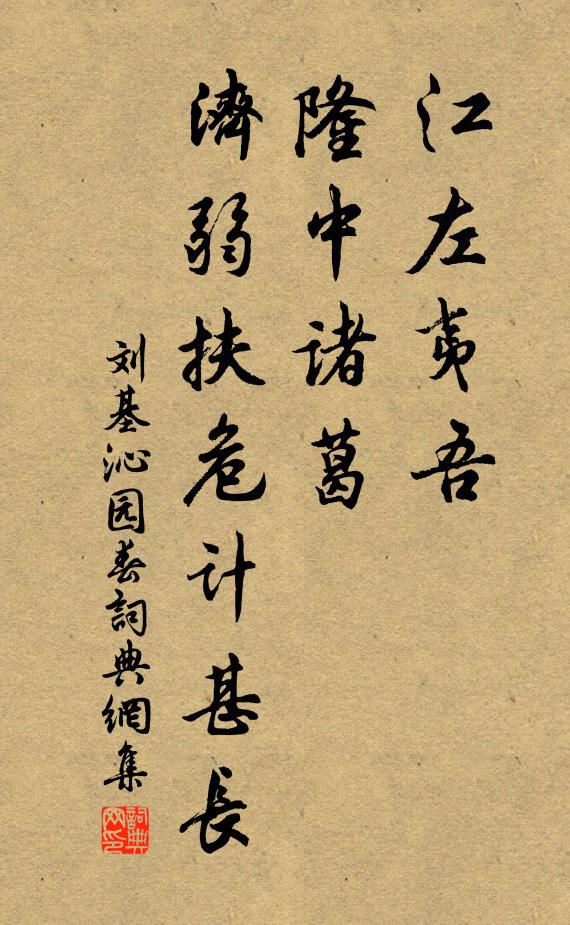 江左夷吾
隆中诸葛
濟弱扶危计甚長
刘基沁园春詞典網集
詞典网印